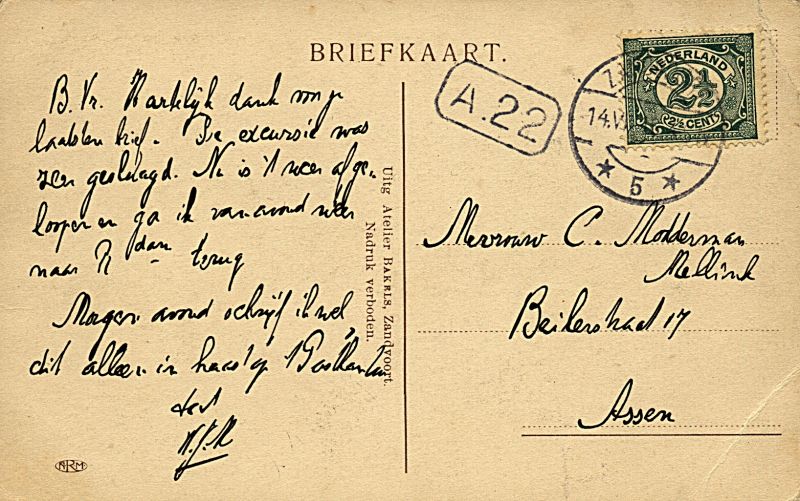 BRIEFKAART.
B. Vr. Hartelijk dank voor je
laatsten brief. De excursie was
zeer geslaagd. Nu is 't weer afge-
loopen en ga ik vanavond weer
naar R'dam terug
Morgen avond schrijf ik wel
dit alleen in haast op 't Postkantoor
Uitg Atelier BAKELS, Zandvoort.
Nadruk verboden.
A.22
14.V
5
NEDERLAND
2½
2½ CENT
Mevrouw C. Modderman
Mellink
Beilerstraat 17
Assen